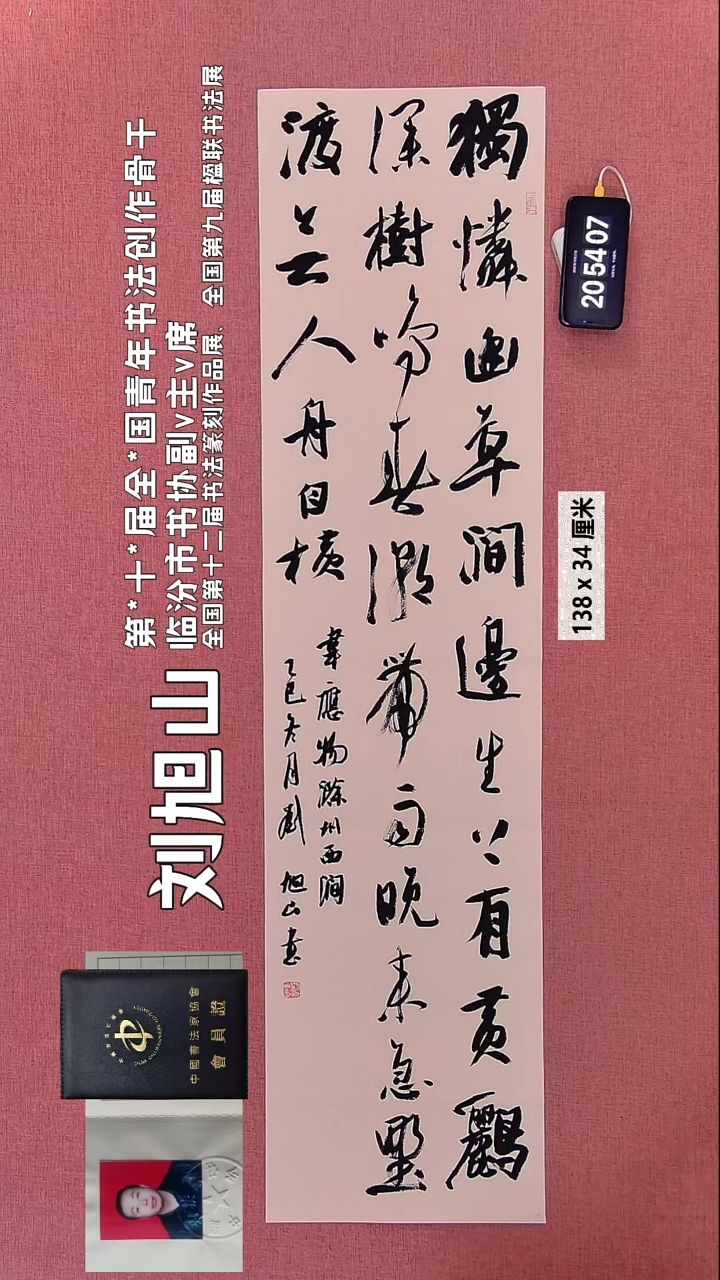 獨憐幽草澗邊生上有黃鸝
深樹鳴春潮帶雨晚来急野
渡無人舟自橫
韋應物滁州西澗
乙巳冬月劉旭山書
刘旭山
第*十*届全*国青年书法创作骨干
临汾市书协副v主v席
全国第十二届书法篆刻作品展、全国第九届楹联书法展
138 x 34 厘米
20 54 07
中國書法家協會
會員證